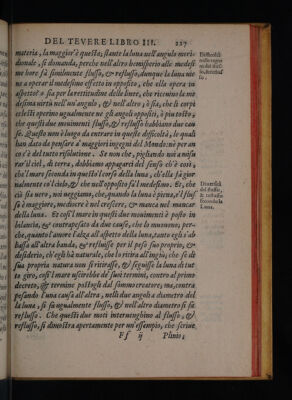 DEL TEVERE LIBRO III. 227
materia, la maggior' è questa; stante la luna nell'angulo meri-
dionale, si domanda, perche nell'altro hemisperio alle medesi
me hore fà similmente flusso, & reflusso, dunque la luna uie
ne a operar il medesimo effetto in opposito, che ella opera in
aspetto? o sia per la restitutione delle linee, che ricevino la me
desima uirtù nell'un'angulo, & nell'altro, ò sia, che li corpi
celesti operino ugualmente ne gli angoli oppositi, ò piu tosto,
che questi due mouimenti flusso, & reflusso habbiano due cau
se. Questo non è luogo da entrare in queste difficoltà, le quali
han dato da pensare a' maggiori ingegni del Mondo: nè per an
co s'è del tutto risolutione. Se non che, pigliando noi a misu
rar'il ciel, di terra, dobbiamo appagarci del senso ch'è così,
che'l mare seconda in questo l corso della luna, ch'ella fà gior
nalmente co'l cielo, & che nell'opposito fà'l medesimo. Et, che
ciò sia uero, noi ueggiamo, che, quando la luna è piena, e'l flus
so è maggiore, mediocre è nel crescere, & manca nel mancar
della luna. Et così'l mare in questi due mouimenti è posto in
bilancia, & contrapesato da due cause, che lo mouono: per-
che, quanto l'amore l'alza all'aspetto della luna, tanto egli s'ab
bassa all'altra banda, & reflusse per il peso suo proprio, &
desiderio, ch'egli hà naturale, che lo ritira all'ingiù; che se di
sua propria natura non si ritirasse, & seguisse la luna di tut
to giro, così'l mare uscirebbe de' suoi termini, contro al primo
decreto, & termine postogli dal sommo creatore; ma, contra
pesando l'una causa all'altra, nelli due anguli a diametro del
la luna, si fà ugualmente flusso, & nell'altro diametro si fà
reflusso. Che questi due moti interuenghino al flusso, &
reflusso, si dimostra apertamente per un'essempio, che scriue
Ff ij Plinio;
Diuersità
del flusso,
& reflusso
secondo la
Luna.